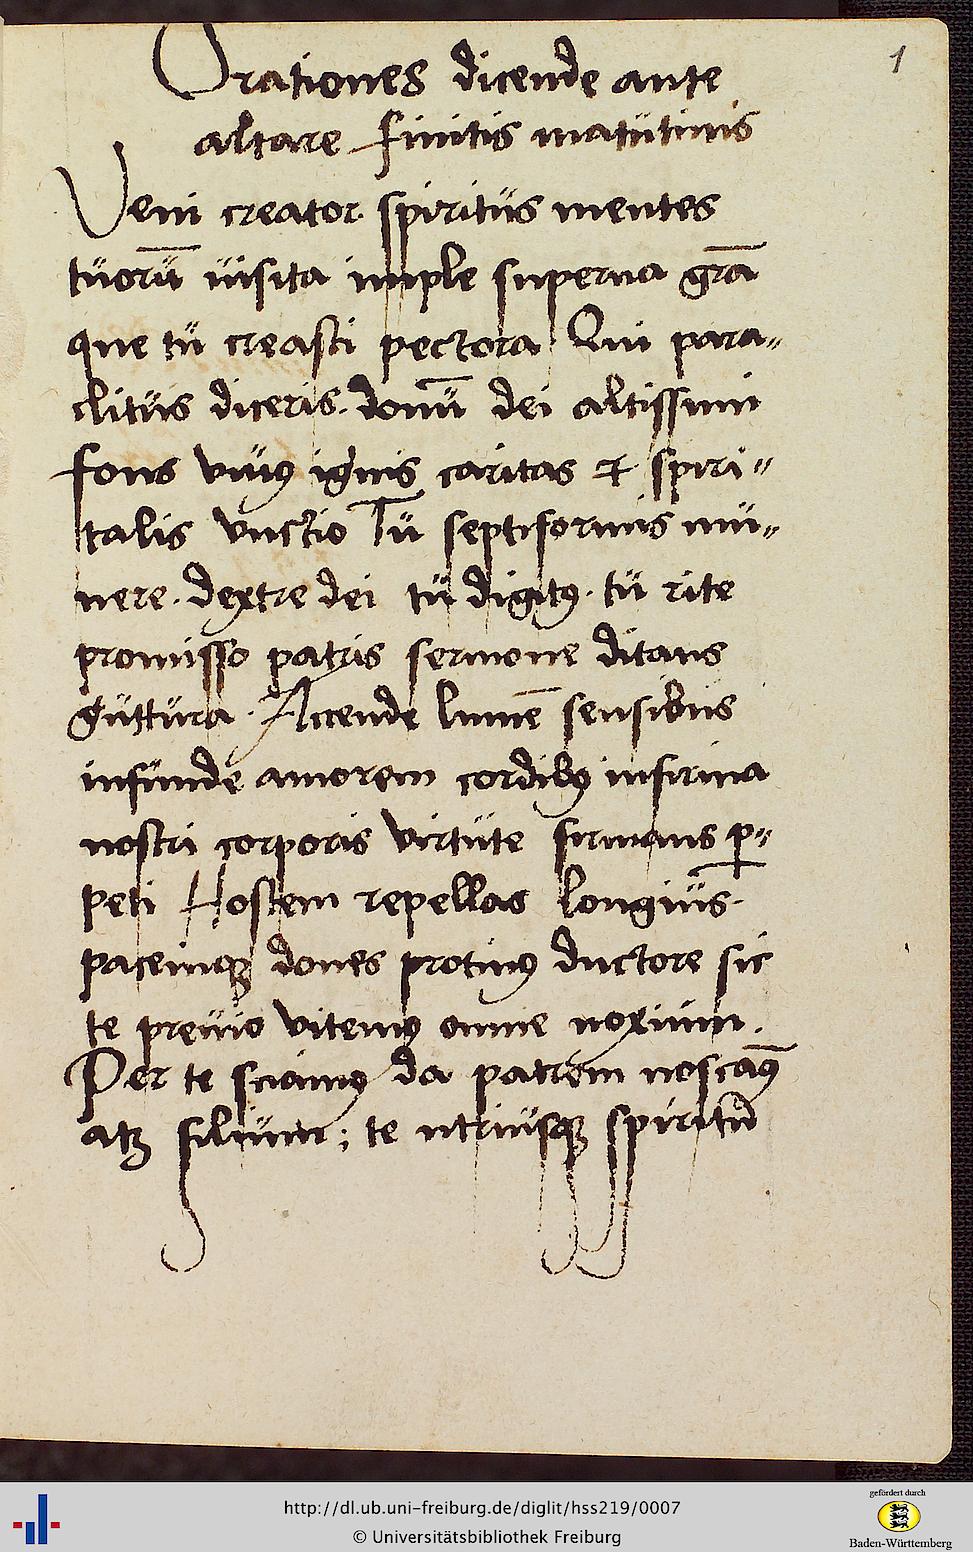 1
Orationes dicende ante
altare finitis matütinis
Veni creator spiritüs mentes
tüorū uisita imple superna grā
que tü creasti pectora Qui para„
clitüs diceris. donū dei altissimi
fons viuꝰ ignis caritas ⁊ spiri„
talis vnctio Tü septiformis mü„
nere. dextre dei tü digitꝰ. tü rite
promisso patris sermone ditans
güttüra. Accende lumē sensibus
infünde amorem cordibꝰ infirma
nostri corporis virtüte firmans ꝑ„
peti Hostem repellas longiüs.
pacemqꝫ dones protinꝰ ductore sic
te preüio vitemꝰ omne noxium.
Per te sciamꝰ da patrem noscāꝰ
atqꝫ filiüm; te utriüsqꝫ spiritū
http://dl.ub.uni-freiburg.de/diglit/hss219/0007
© Universitätsbibliothek Freiburg
gefördert durch
Baden-Württemberg